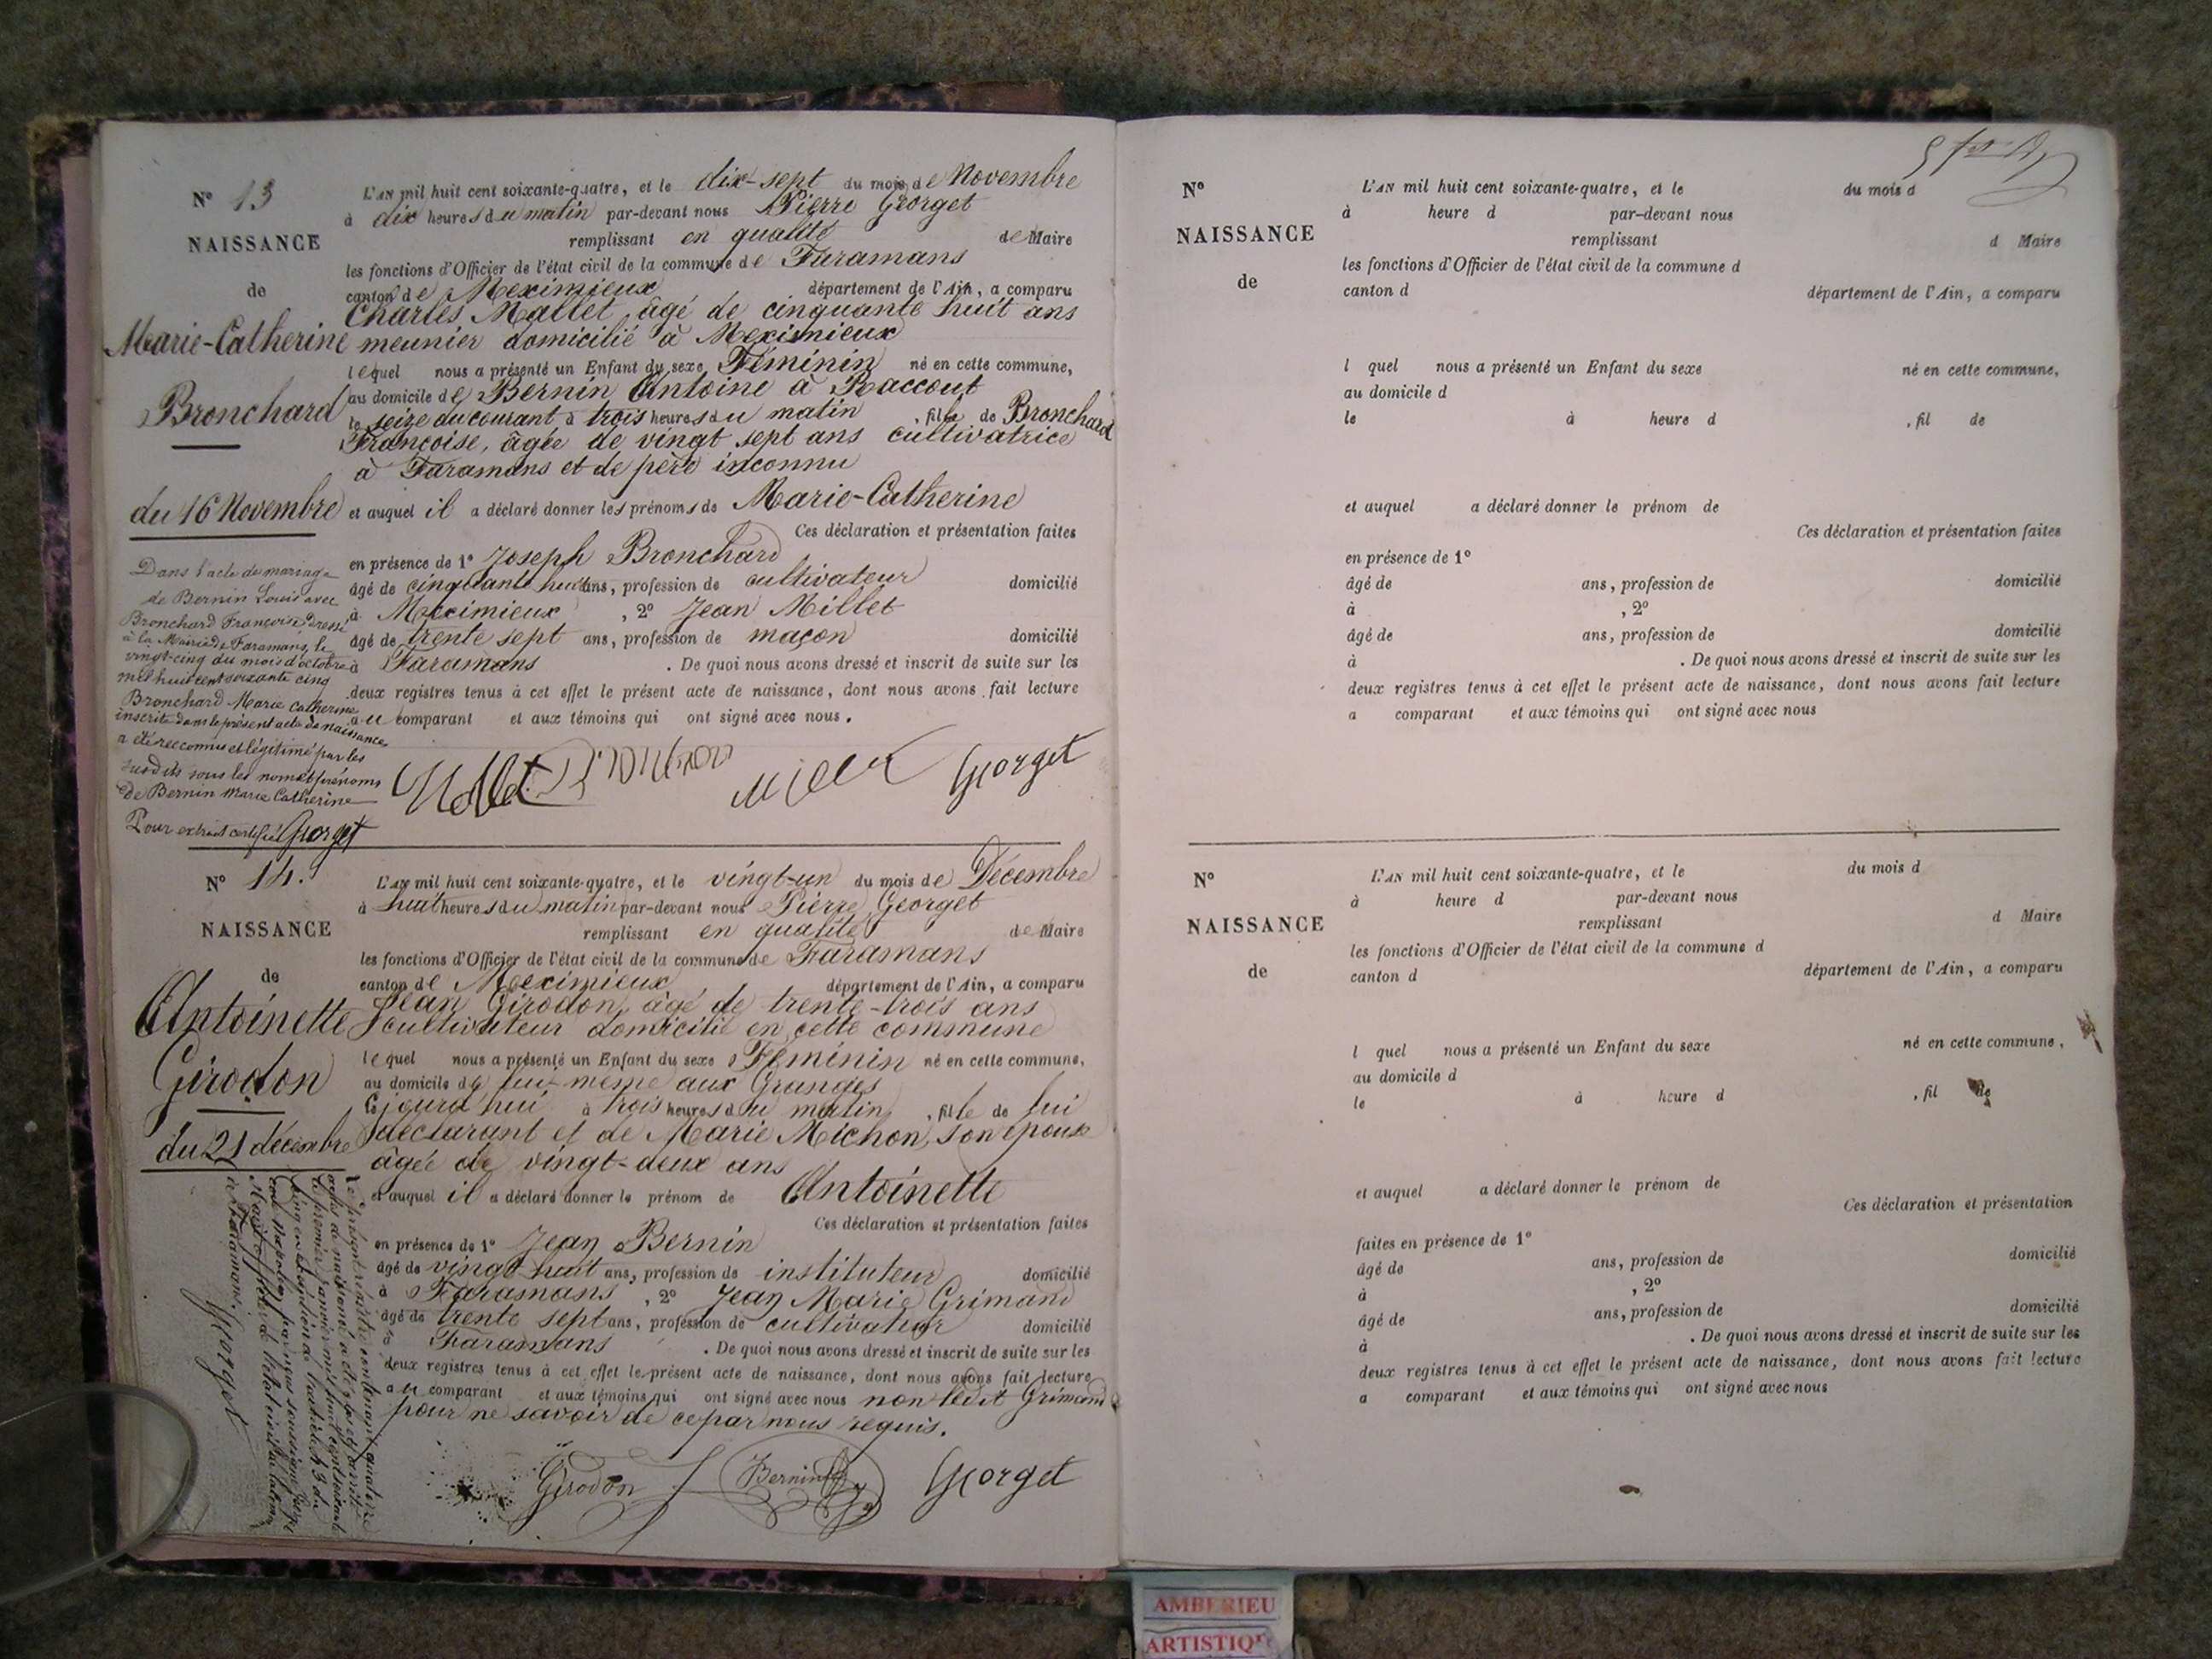 N° 13
NAISSANCE
de
Marie-Catherine
Bronchard
du 16 Novembre
Dans l'acte de mariage
de Bernin Louis avec
Bronchard Françoise dressé
à la Mairie de Faramans, le
vingt-cinq du mois d'octobre
mil huit cent soixante cinq
Bronchard Marie Catherine
inscrite dans le présent acte de naissance
a été reconnue et légitimé par les
susdits sous les nom et prénoms
de Bernin Marie Catherine
Pour extrait certifié Georget
L'AN mil huit cent soixante-quatre, et le dix-sept du mois de Novembre
à dix heures du matin par-devant nous Pierre Georget
remplissant en qualité de Maire
les fonctions d'Officier de l'état civil de la commune de Faramans
canton de Meximieux département de l'Ain, a comparu
Charles Mallet, âgé de cinquante huit ans
meunier domicilié à Meximieux
lequel nous a présenté un Enfant du sexe Féminin né en cette commune,
au domicile de Bernin Antoine à Raccout
le seize du courant à trois heures du matin, fille de Bronchard
Françoise, âgée de vingt sept ans cultivatrice
à Faramans et de père inconnu
et auquel il a déclaré donner les prénoms de Marie-Catherine
Ces déclaration et présentation faites
en présence de 1° Joseph Bronchard
âgé de cinquante huit ans, profession de cultivateur domicilié
à Meximieux, 2° Jean Millet
âgé de trente sept ans, profession de maçon domicilié
à Faramans. De quoi nous avons dressé et inscrit de suite sur les
deux registres tenus à cet effet le présent acte de naissance, dont nous avons fait lecture
au comparant et aux témoins qui ont signé avec nous.
Georget
N° 14.
NAISSANCE
de
Antoinette
Girodon
du 21 décembre
L'AN mil huit cent soixante-quatre, et le vingt-un du mois de Décembre
à huit heures du matin par-devant nous Pierre Georget
remplissant en qualité de Maire
les fonctions d'Officier de l'état civil de la commune de Faramans
canton de Meximieux département de l'Ain, a comparu
Jean Girodon, âgé de trente-trois ans
cultivateur domicilié en cette commune
lequel nous a présenté un Enfant du sexe Féminin né en cette commune,
au domicile de lui-même aux Granges
le jourd'hui à trois heures du matin, fille de lui
déclarant et de Marie Michon, son épouse
âgée de vingt-deux ans
et auquel il a déclaré donner le prénom de Antoinette
Ces déclaration et présentation faites
en présence de 1° Jean Bernin
âgé de vingt huit ans, profession de instituteur domicilié
à Faramans, 2° Jean Marie Grimand
âgé de trente sept ans, profession de cultivateur domicilié
à Faramans. De quoi nous avons dressé et inscrit de suite sur les
deux registres tenus à cet effet le présent acte de naissance, dont nous avons fait lecture
au comparant et aux témoins qui ont signé avec nous non ledit Grimand
pour ne savoir de ce par nous requis.
Girodon Bernin Georget
Le présent registre contenant quatorze
actes de naissance a été clos et arrêté
le premier janvier mil huit cent soixante
cinq
à Faramans.
Georget
N°
NAISSANCE
de
L'AN mil huit cent soixante-quatre, et le du mois d
à heure d par-devant nous
remplissant d Maire
les fonctions d'Officier de l'état civil de la commune d
canton d département de l'Ain, a comparu
l quel nous a présenté un Enfant du sexe né en cette commune,
au domicile d
le à heure d , fil de
et auquel a déclaré donner le prénom de
Ces déclaration et présentation faites
en présence de 1°
âgé de ans, profession de domicilié
à , 2°
âgé de ans, profession de domicilié
à . De quoi nous avons dressé et inscrit de suite sur les
deux registres tenus à cet effet le présent acte de naissance, dont nous avons fait lecture
a comparant et aux témoins qui ont signé avec nous
N°
NAISSANCE
de
L'AN mil huit cent soixante-quatre, et le du mois d
à heure d par-devant nous
remplissant d Maire
les fonctions d'Officier de l'état civil de la commune d
canton d département de l'Ain, a comparu
l quel nous a présenté un Enfant du sexe né en cette commune,
au domicile d
le à heure d , fil de
et auquel a déclaré donner le prénom de
Ces déclaration et présentation
faites en présence de 1°
âgé de ans, profession de domicilié
à , 2°
âgé de ans, profession de domicilié
à . De quoi nous avons dressé et inscrit de suite sur les
deux registres tenus à cet effet le présent acte de naissance, dont nous avons fait lecture
a comparant et aux témoins qui ont signé avec nous
AMBERIEU
ARTISTIQU